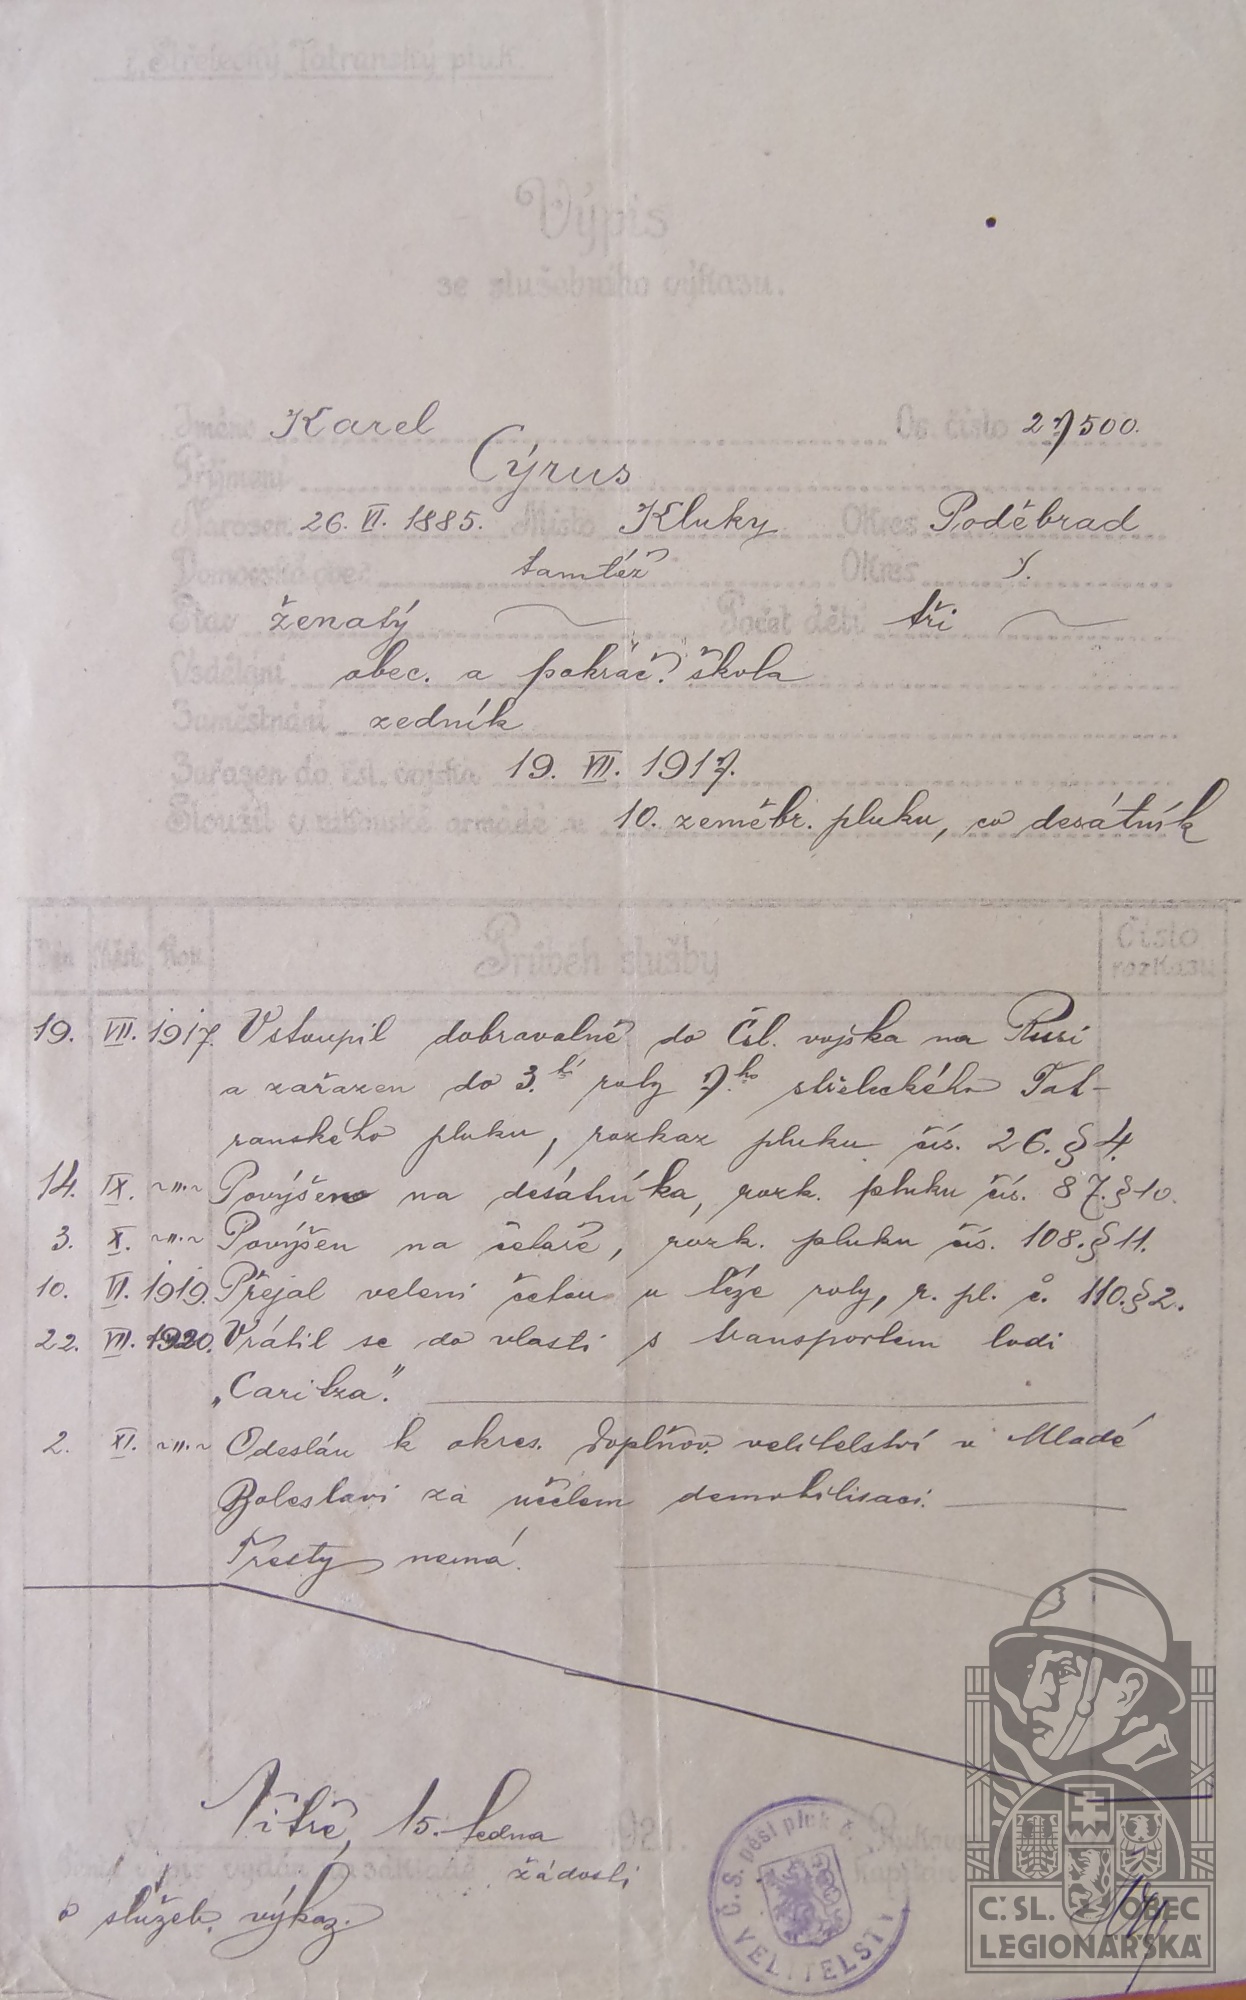 7. Střelecký Tatranský pluk.
Výpis
ze služebního výkazu.
Jméno Karel Os. číslo 27500.
Příjmení Cýrus
Narozen 26. VI. 1885. Místo Kluky Okres Poděbrad
Domovská obec tamtéž Okres
Stav ženatý Počet dětí tři
Vzdělání obec. a pokrač. škola
Zaměstnání zedník
Zařazen do čsl. vojska 19. VII. 1917.
Sloužil v rakouské armádě u 10. zeměbr. pluku, co desátník
Den Měs. Rok Průběh služby Číslo rozkazu
19. VII. 1917. Vstoupil dobrovolně do Čsl. vojska na Rusi
a zařazen do 3.tí roty 7.ho střeleckého Tat-
ranského pluku, rozkaz pluku čís. 26. § 4.
14. IX. ~"~ Povýšen na desátníka, rozk. pluku čís. 87. § 10.
3. X. ~"~ Povýšen na četaře, rozk. pluku čís. 108. § 11.
10. VI. 1919. Přejal velení četou u téže roty, r. pl. č. 110. § 2.
22. VII. 1920. Vrátil se do vlasti s transportem lodi
„Caritza".
2. XI. ~"~ Odeslán k okres. doplňov. velitelství v Mladé
Boleslavi za účelem demobilisaci.
Tresty nemá.
15. ledna 1921.
výpis vydán na základě žádosti
o služeb. výkaz.
Č.S. pěší pluk č.
VELITELSTVÍ
kapitán
Č. SL. OBEC
LEGIONÁŘSKÁ